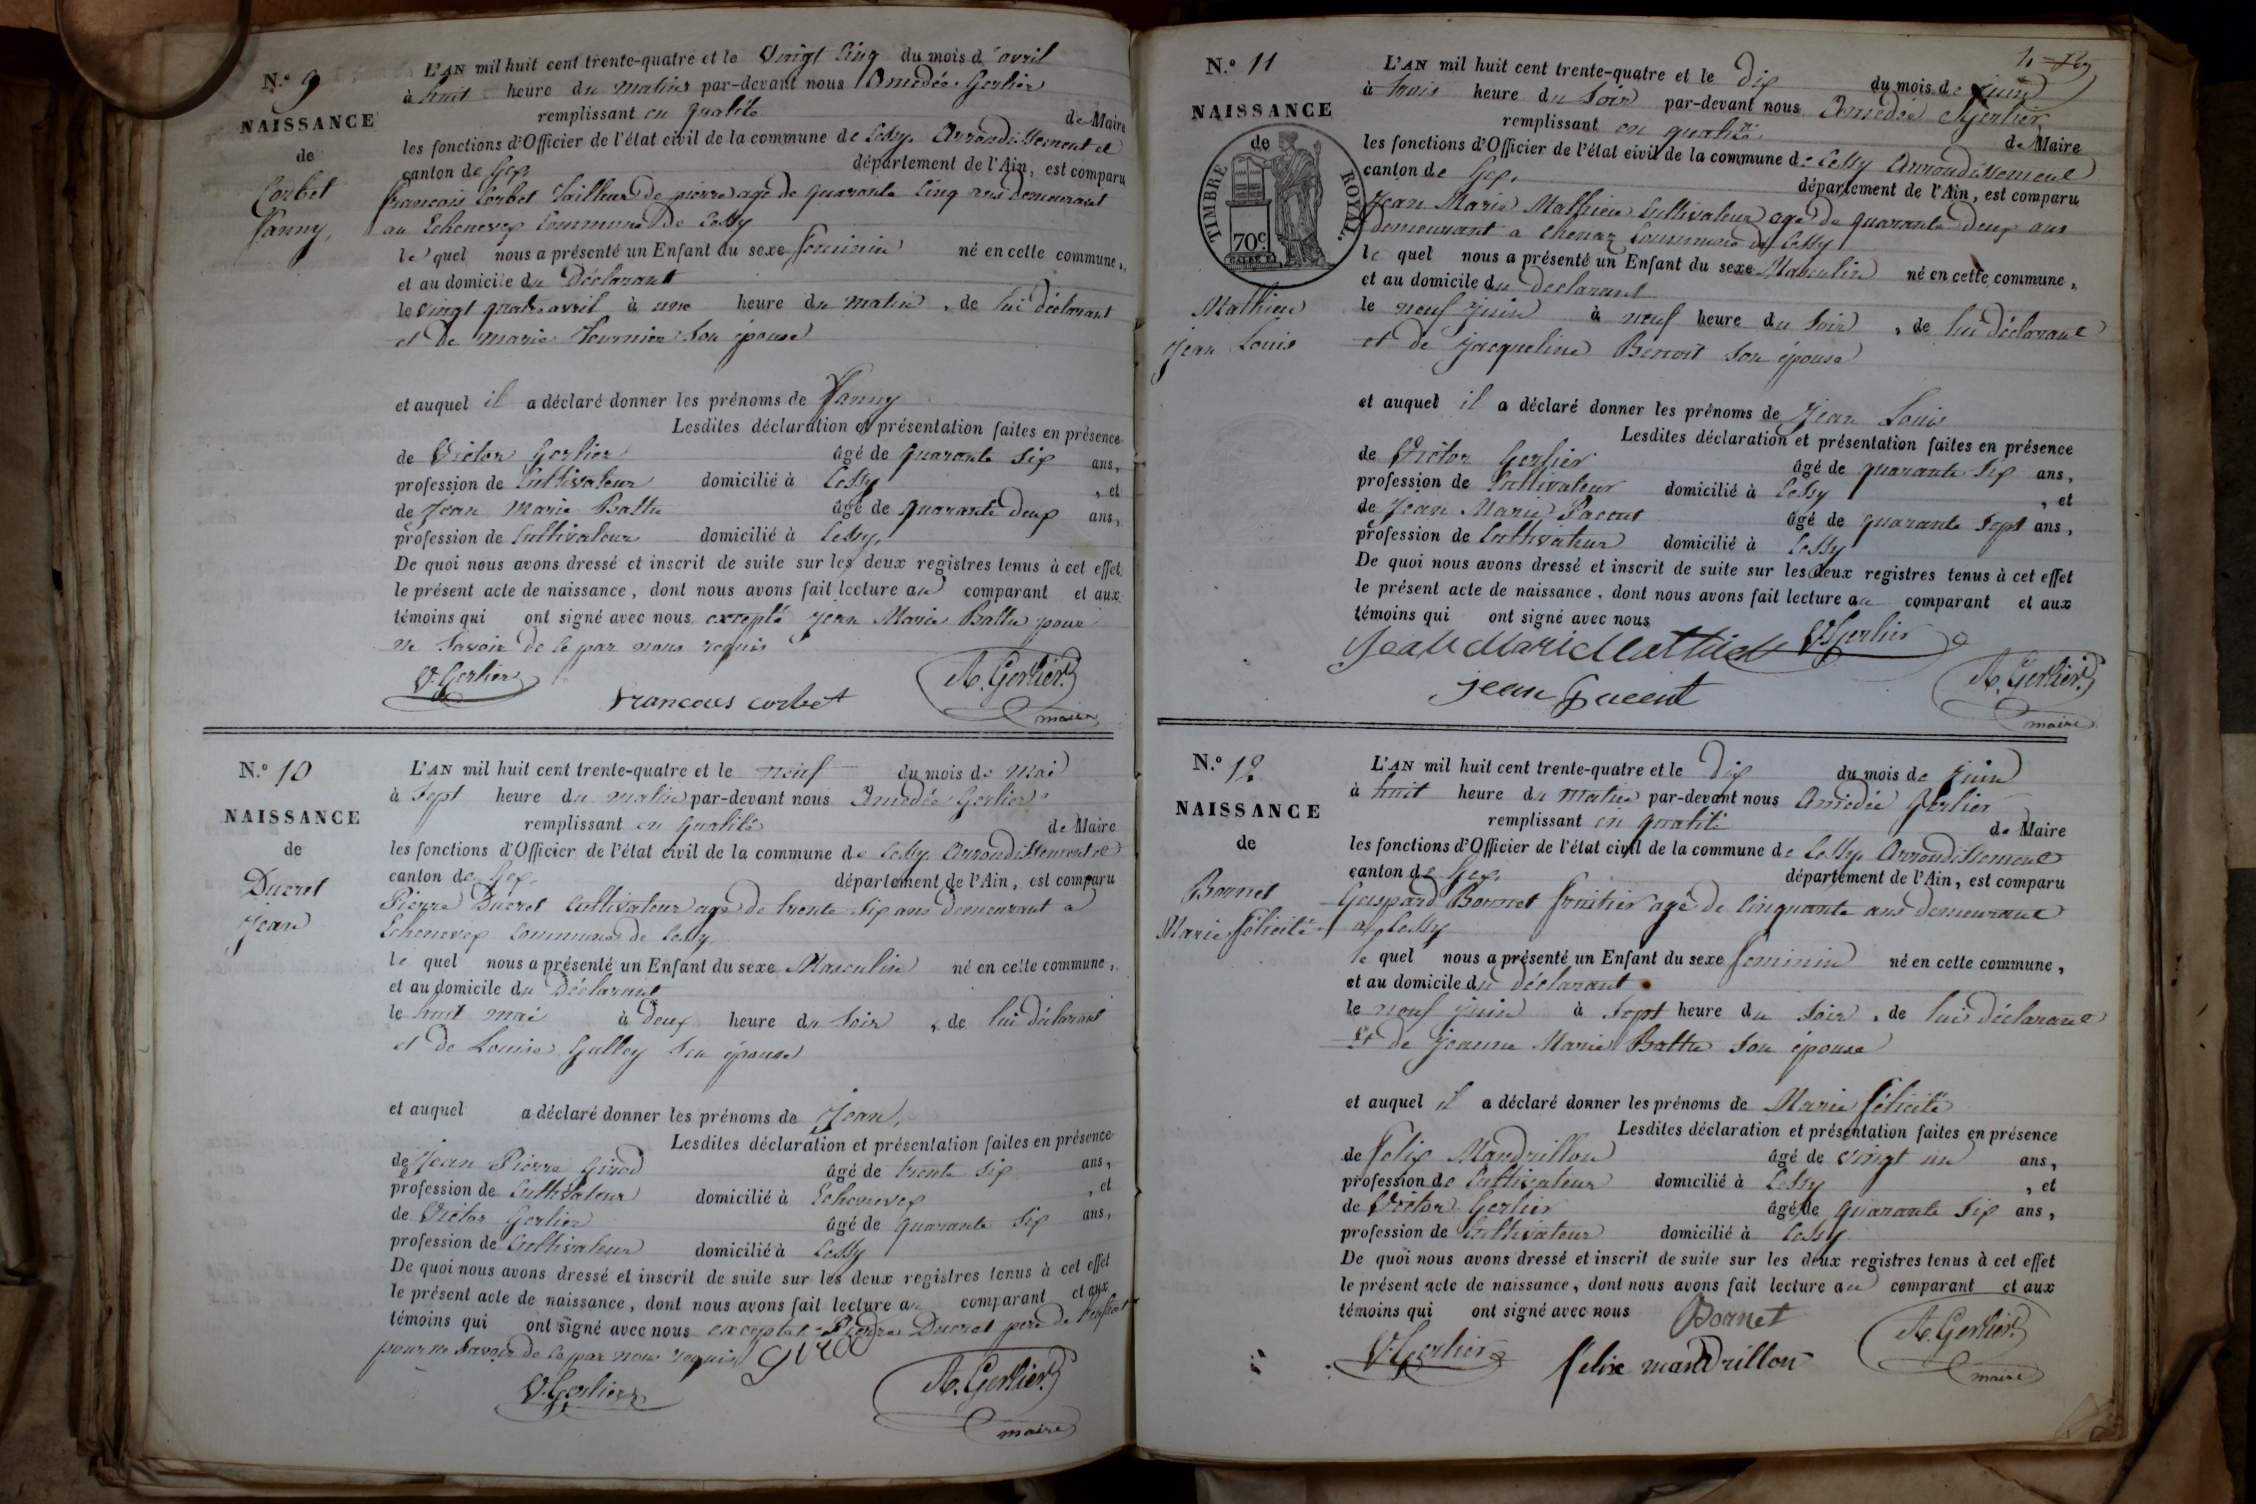 N.º 9
NAISSANCE
de
Corbet
Fanny,
L'AN mil huit cent trente-quatre et le Vingt Cinq du mois d'avril
à huit heure du matin par-devant nous Amédée Gerlier
remplissant en qualité de Maire
les fonctions d'Officier de l'état civil de la commune de Cessy. Arrondissement et
canton de Gex département de l'Ain, est comparu
francois Corbet Tailleur de pierre agé de quarante Cinq ans demeurant
au Echenevex Commune De Cessy
le quel nous a présenté un Enfant du sexe feminin né en cette commune,
et au domicile du Déclarant
le vingt quatre avril à une heure du matin, de lui déclarant
et De marie Tournier Son épouse
et auquel il a déclaré donner les prénoms de Fanny
Lesdites déclaration et présentation faites en présence
de Victor Gerlier âgé de quarante Six ans,
profession de Cultivateur domicilié à Cessy , et
de Jean Marie Battu âgé de quarante deux ans,
profession de Cultivateur domicilié à Cessy,
De quoi nous avons dressé et inscrit de suite sur les deux registres tenus à cet effet
le présent acte de naissance, dont nous avons fait lecture au comparant et aux
témoins qui ont signé avec nous excepté Jean Marie Battu pour
ne Savoir de ce par nous requis
V. Gerlier francous corbet A. Gerlier
maire
N.º 10
NAISSANCE
de
Ducret
Jean
L'AN mil huit cent trente-quatre et le neuf du mois de Mai
à Sept heure du matin par-devant nous Amédée Gerlier
remplissant en qualité de Maire
les fonctions d'Officier de l'état civil de la commune de Cessy. Arrondissement et
canton de Gex. département de l'Ain, est comparu
Pierre Ducret Cultivateur agé de trente Six ans demeurant a
Echenevex Commune de Cessy
le quel nous a présenté un Enfant du sexe Masculin né en cette commune,
et au domicile du Déclarant
le huit mai à deux heure du Soir , de lui déclarant
et de Louise Galley Son épouse
et auquel a déclaré donner les prénoms de Jean,
Lesdites déclaration et présentation faites en présence
de Jean Pierre Girod âgé de trente Six ans,
profession de Cultivateur domicilié à Echenevex , et
de Victor Gerlier âgé de quarante Six ans,
profession de Cultivateur domicilié à Cessy
De quoi nous avons dressé et inscrit de suite sur les deux registres tenus à cet effet
le présent acte de naissance, dont nous avons fait lecture au comparant et aux
témoins qui ont signé avec nous excepté Pierre Ducret pere de l'enfant
pour ne Savoir de ce par nous requis girod
V. Gerlier A. Gerlier
maire
N.º 11
NAISSANCE
de
TIMBRE ROYAL.
70c.
Mathieu
Jean Louis
L'AN mil huit cent trente-quatre et le dix du mois de juin
à trois heure du Soir par-devant nous Amédée Gerlier
remplissant en qualité de Maire
les fonctions d'Officier de l'état civil de la commune de Cessy Arrondissement
canton de Gex. département de l'Ain, est comparu
Jean Marie Mathieu Cultivateur agé de quarante deux ans
demeurant a chenaz Commune de Cessy
le quel nous a présenté un Enfant du sexe Masculin né en cette commune,
et au domicile du déclarant
le neuf Juin à neuf heure du Soir , de lui déclarant
et de Jacqueline Benoit Son épouse
et auquel il a déclaré donner les prénoms de Jean Louis
Lesdites déclaration et présentation faites en présence
de Victor Gerlier âgé de quarante Six ans,
profession de Cultivateur domicilié à Cessy , et
de Jean Marie Pacout âgé de quarante Sept ans,
profession de Cultivateur domicilié à Cessy
De quoi nous avons dressé et inscrit de suite sur les deux registres tenus à cet effet
le présent acte de naissance, dont nous avons fait lecture au comparant et aux
témoins qui ont signé avec nous
Jean Marie Mathieu V. Gerlier
jean A. Gerlier
maire
N.º 12
NAISSANCE
de
Bonnet
Marie félicité
L'AN mil huit cent trente-quatre et le dix du mois de Juin
à huit heure du Matin par-devant nous Amédée Gerlier
remplissant en qualité de Maire
les fonctions d'Officier de l'état civil de la commune de Cessy Arrondissement
canton de Gex. département de l'Ain, est comparu
Gaspard Bonnet fruitier agé de Cinquante ans demeurant
a Cessy
le quel nous a présenté un Enfant du sexe feminin né en cette commune,
et au domicile du déclarant
le neuf juin à Sept heure du Soir , de lui déclarant
et de Jeanne Marie Battu Son épouse
et auquel il a déclaré donner les prénoms de Marie félicité
Lesdites déclaration et présentation faites en présence
de Felix Mandrillon âgé de vingt un ans,
profession de Cultivateur domicilié à Cessy , et
de Victor Gerlier âgé de quarante Six ans,
profession de Cultivateur domicilié à Cessy
De quoi nous avons dressé et inscrit de suite sur les deux registres tenus à cet effet
le présent acte de naissance, dont nous avons fait lecture au comparant et aux
témoins qui ont signé avec nous Bonnet
V. Gerlier felix mandrillon A. Gerlier
maire